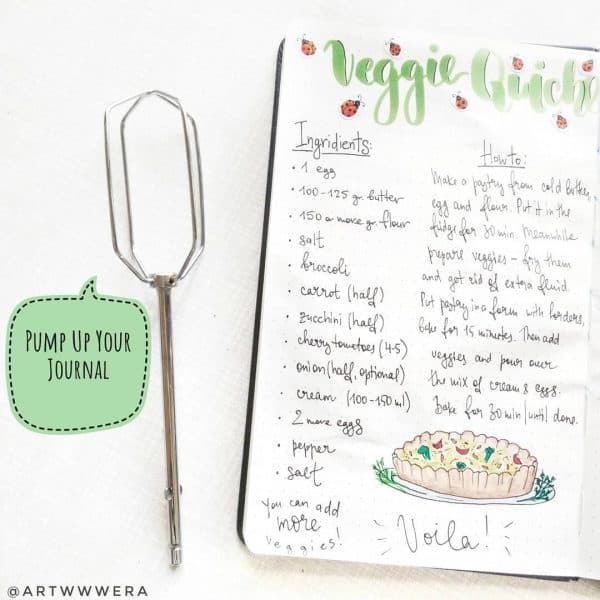 Veggie Quiche
Ingridients:
• 1 egg
• 100-125 gr. butter
• 150 a more gr. flour
• salt
• broccoli
• carrot (half)
• zucchini (half)
• cherry tomatoes (4-5)
• onion (half, optional)
• cream (100-150 ml)
• 2 more eggs
• pepper
• salt
you can add
more
veggies!
How to:
Make a pastry from cold butter,
egg and flour. Put it in the
fridge for 30 min. Meanwhile
prepare veggies – fry them
and get rid of extra fluid.
Put pastry in a form with borders,
bake for 15 minutes. Then add
veggies and pour over
the mix of cream & eggs.
Bake for 30 min/until done.
Voila!
PUMP UP YOUR
JOURNAL
@ARTWWWERA